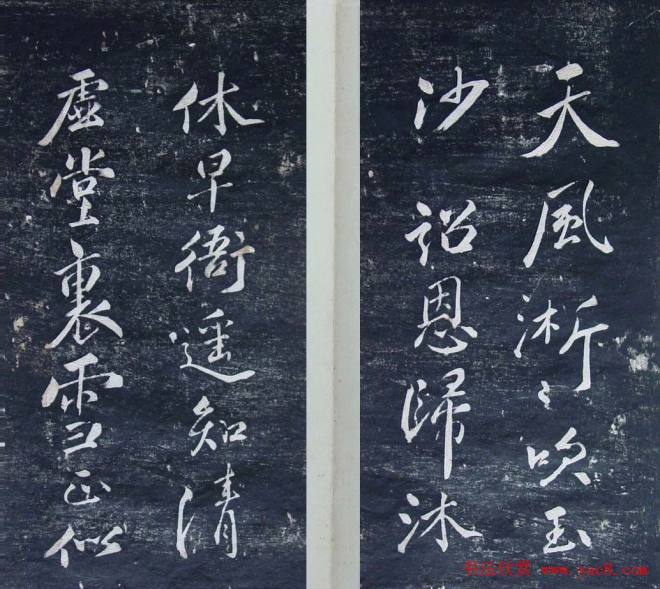 天風淅〻吹玉
沙 詔恩歸沐
休早衙遥知清
虚堂裏雪正似
书法欣赏 www.yac8.com